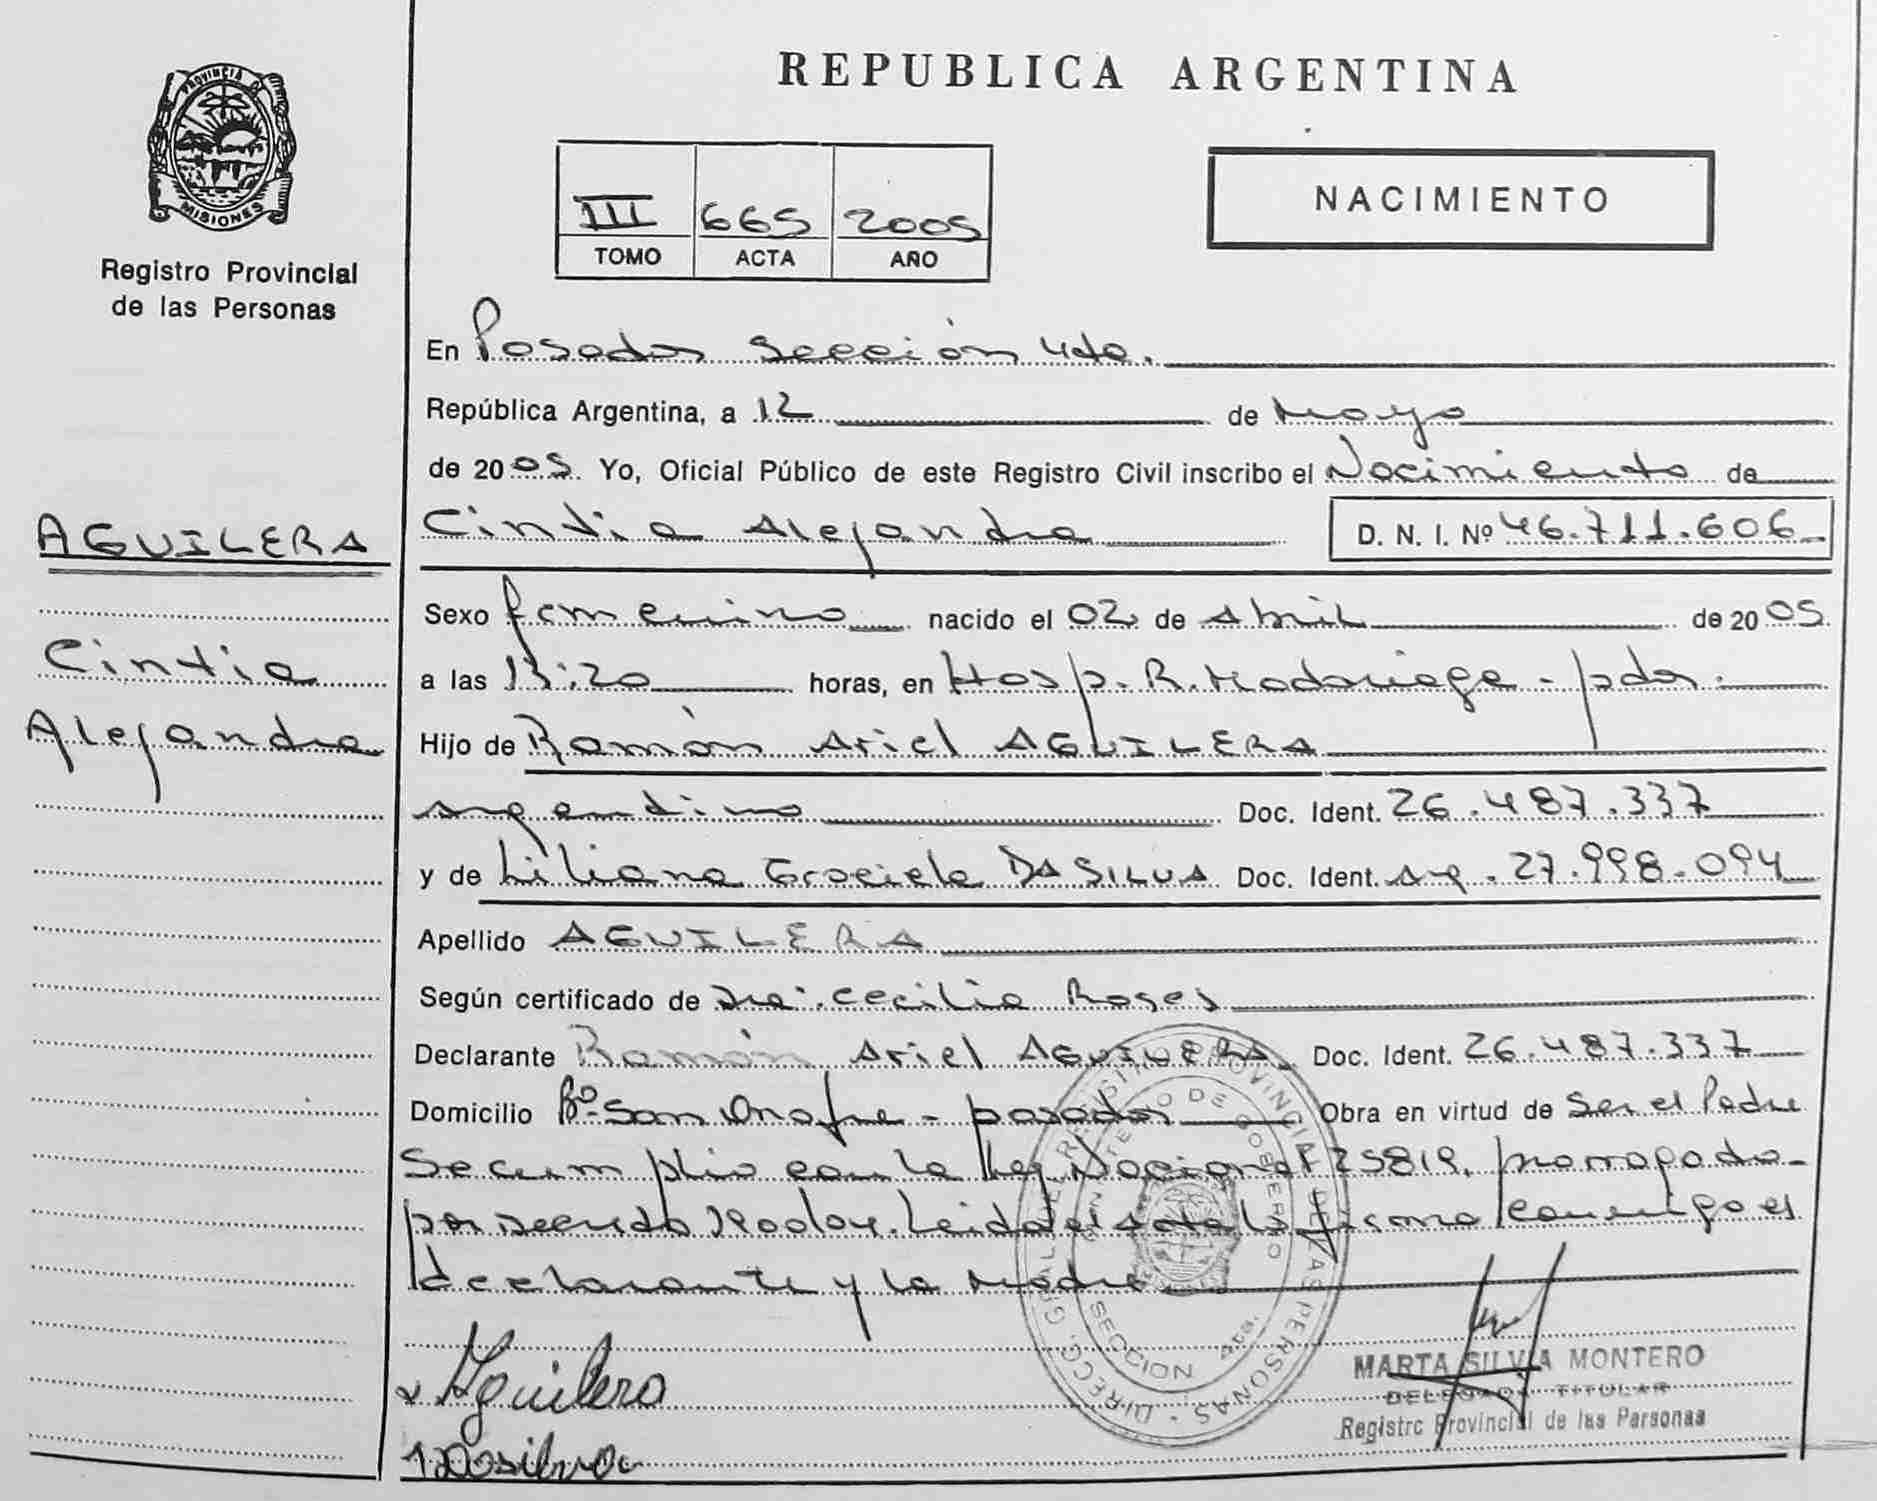 REPUBLICA ARGENTINA
PROVINCIA DE
MISIONES
Registro Provincial
de las Personas
III 665 2005
TOMO ACTA AÑO
NACIMIENTO
En Posadas Sección 4ta.
República Argentina, a 12 de Mayo
de 2005. Yo, Oficial Público de este Registro Civil inscribo el Nacimiento de
AGUILERA
Cintia Alejandra D. N. I. Nº 46.711.606
Sexo femenino nacido el 02 de Abril de 2005
Cintia
Alejandra
a las 13:20 horas, en Hosp. R. Madariaga - pdas.
Hijo de Ramón Ariel AGUILERA
argentino Doc. Ident. 26.487.337
y de Liliana Graciela DA SILVA Doc. Ident. arg. 27.998.094
Apellido AGUILERA
Según certificado de Dra. Cecilia Roses
Declarante Ramón Ariel AGUILERA Doc. Ident. 26.487.337
Domicilio Bº San Onofre - posadas Obra en virtud de Ser el Padre
Se cumplio con la Ley Nacional 25819, prorrogado
por decreto 190/04. Leida el acta la firma conmigo el
declarante y la Madre
DIRECC. GRAL. DEL REGISTRO PROVINCIAL DE LAS PERSONAS
MINISTERIO DE GOBIERNO
SECCION 4ta.
Aguilera
Dasilva
MARTA SILVIA MONTERO
DELEGADA TITULAR
Registro Provincial de las Personas